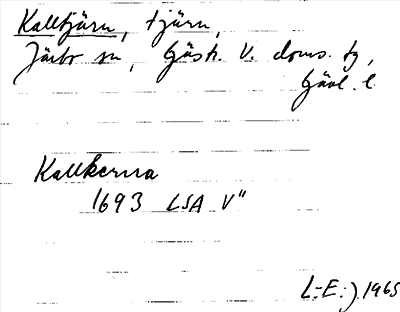 Kalltjärn, tjärn,
Järbo sn, Gästr. V. doms. tg,
Gävl. l.
Kallkerna
1693 LSA V"
L-E:J 1965